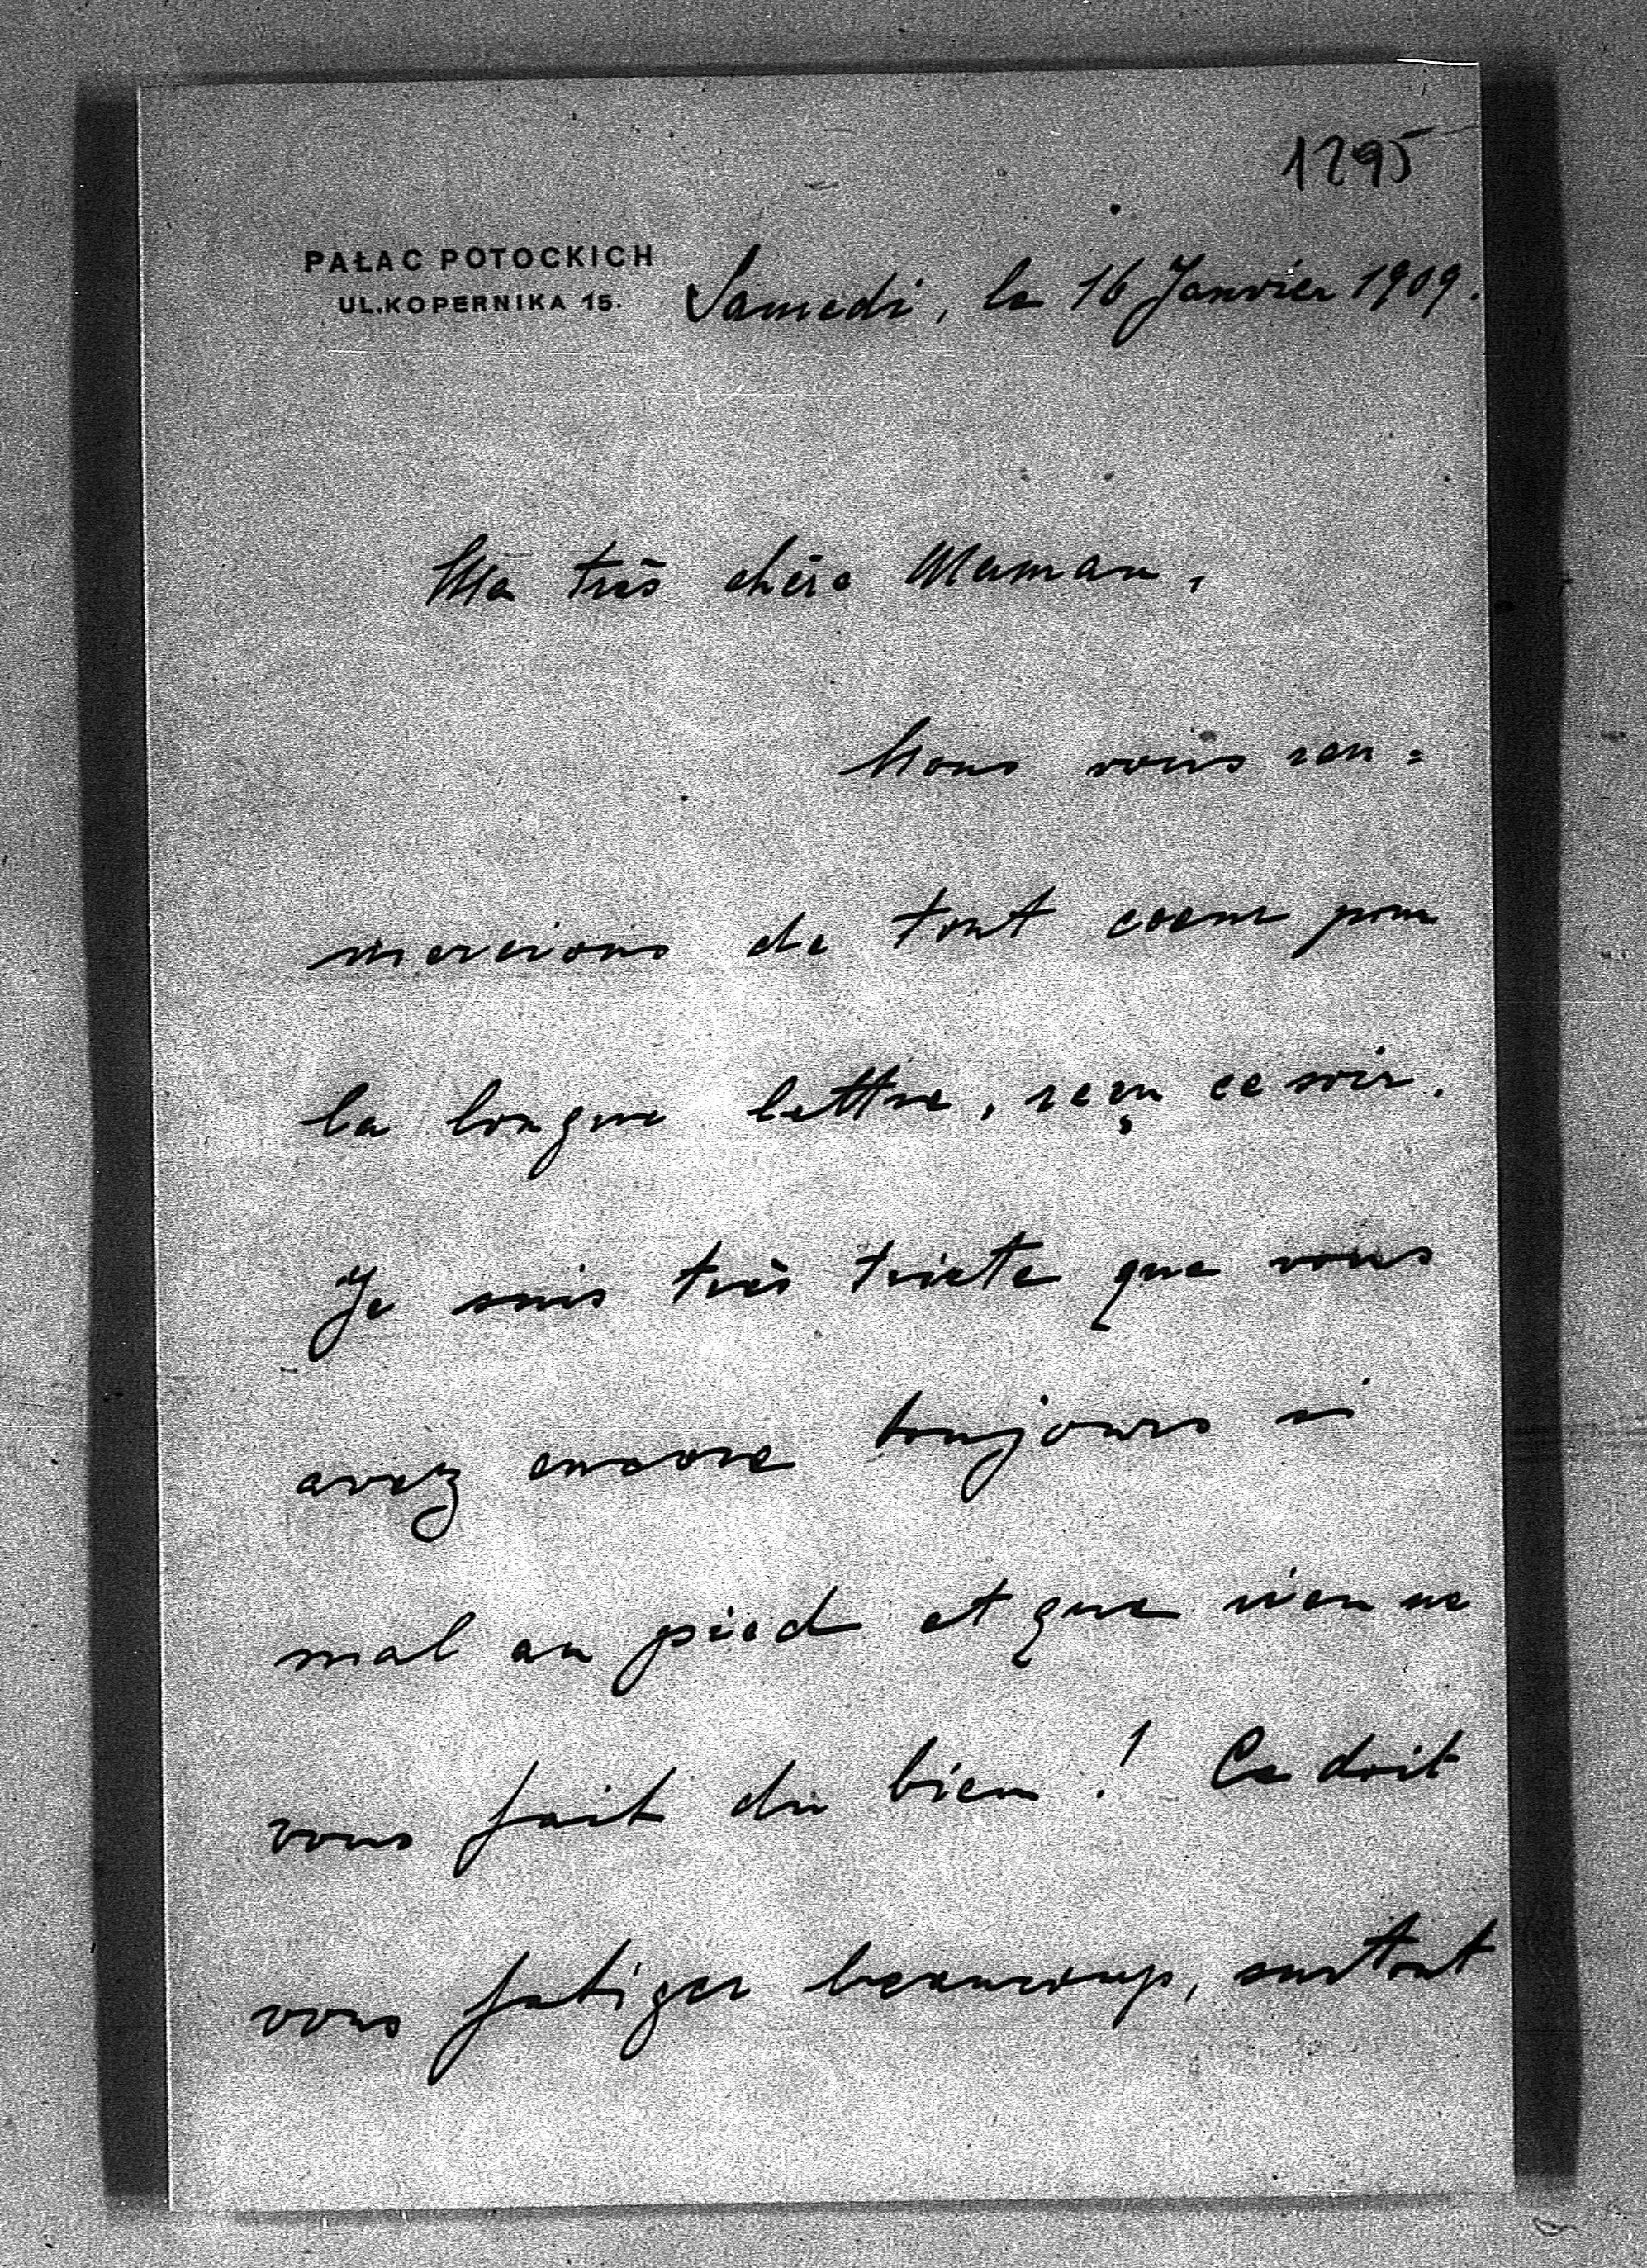 1295
PAŁAC POTOCKICH
UL.KOPERNIKA 15.
Samedi, le 16 Janvier 1909.
Ma très chère Maman,
Nous vous ren=
mercions de tout coeur pour
la longue lettre, reçu ce soir.
Je suis très triste que vous
avez encore toujours si
mal au pied et que rien ne
vous fait du bien! Ca doit
vous fatiger beaucoup, surtout